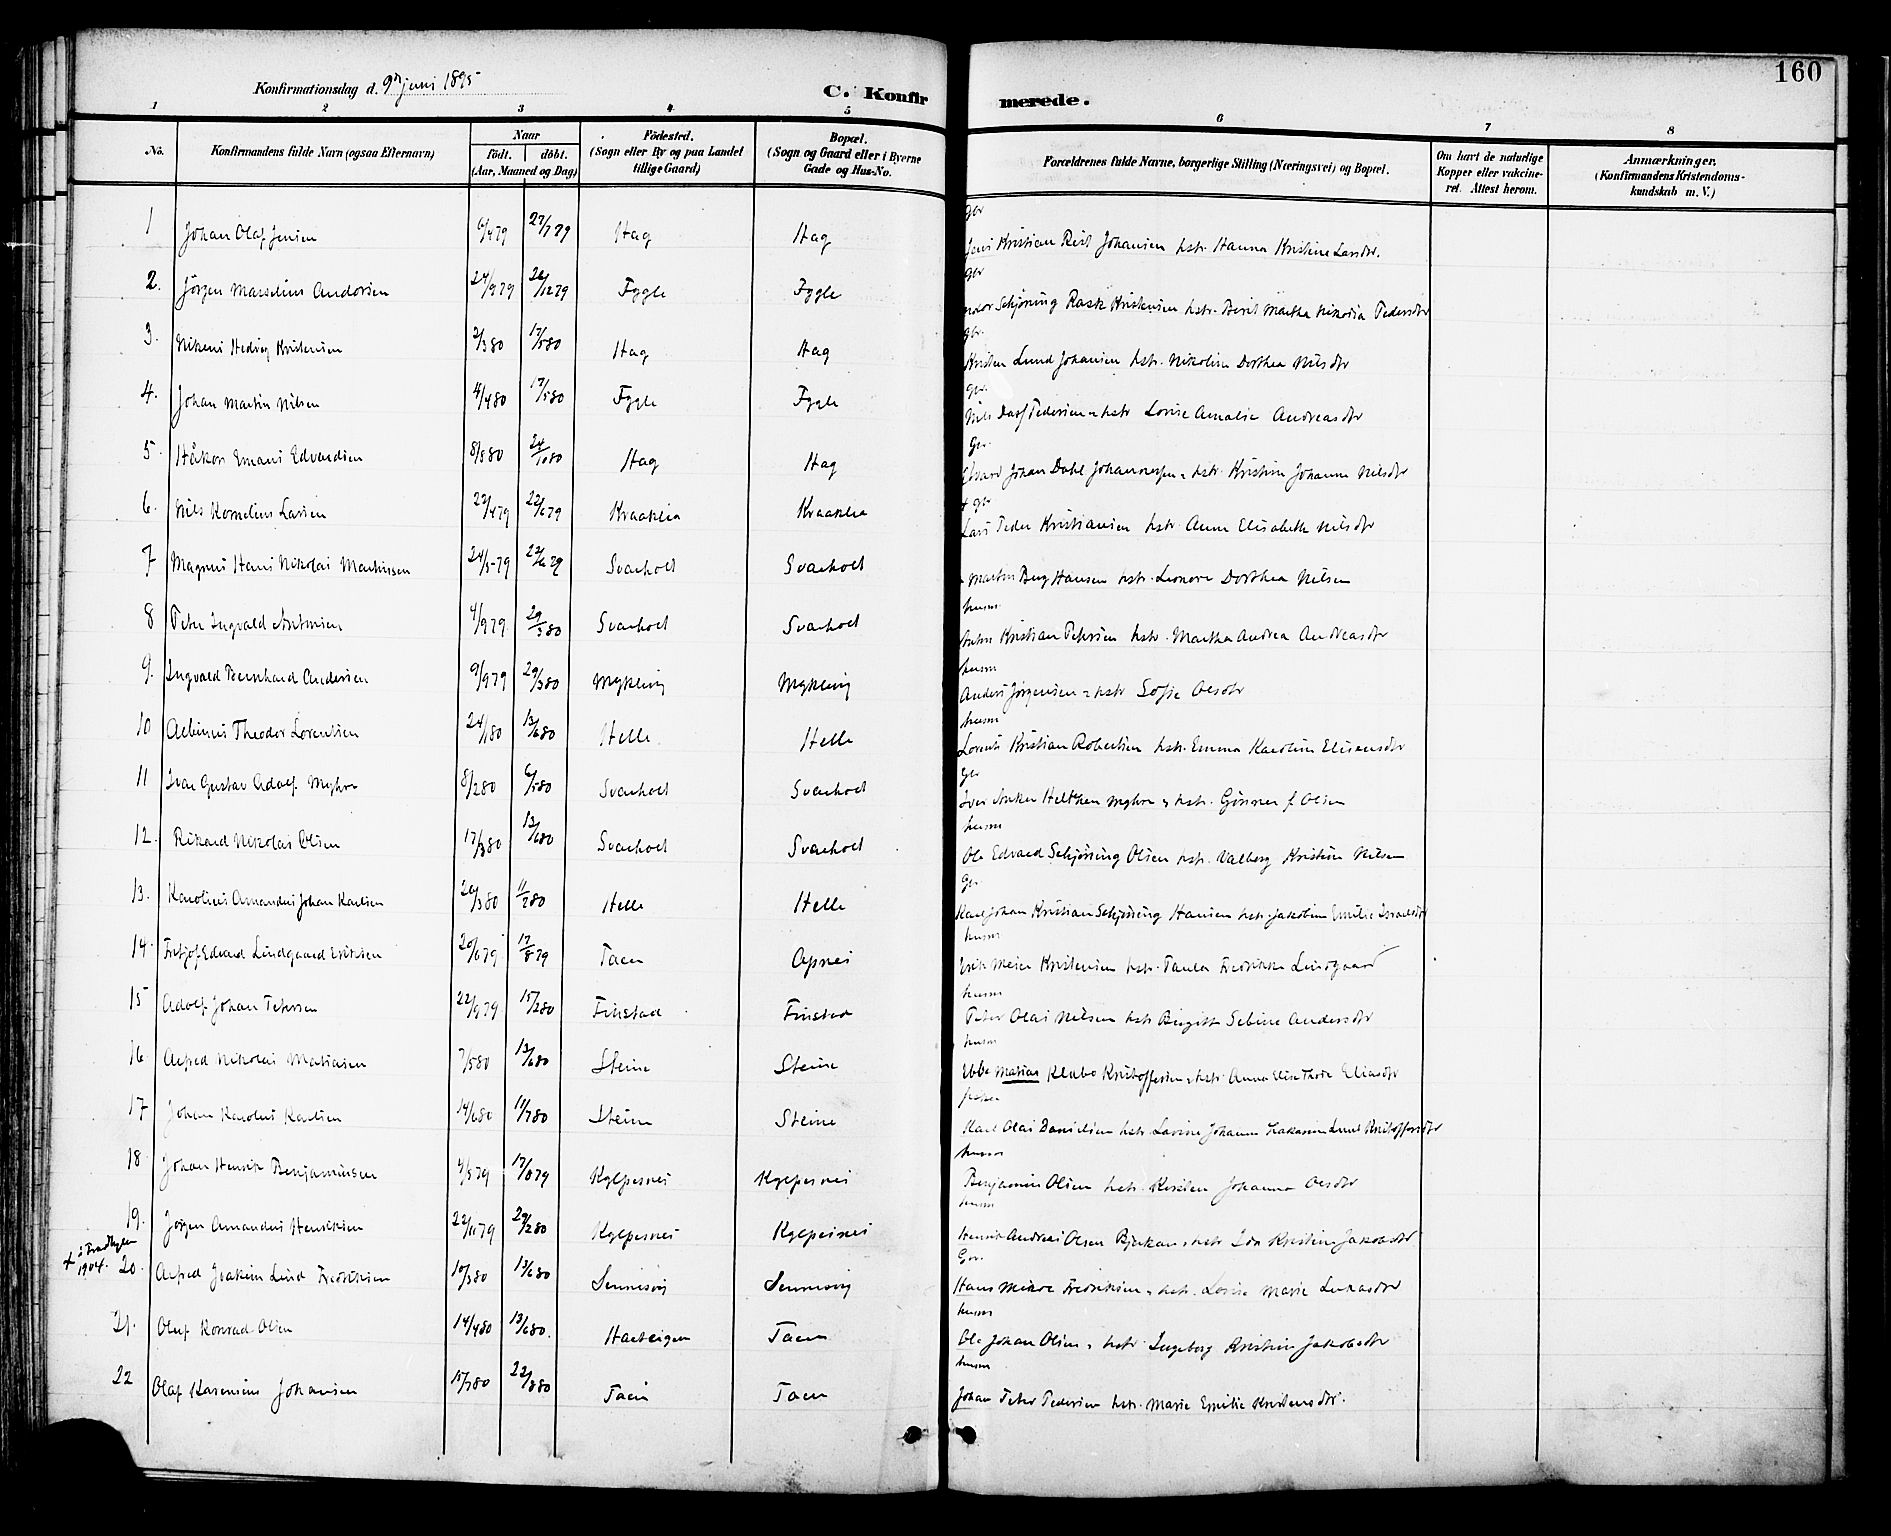 160
Konfirmationsdag d. 9de juni 1895
C. Konfirmerede.
1 2 3 4 5 6 7 8
No.
Konfirmandens fulde Navn (ogsaa Efternavn)
Naar
födt. döbt.
(Aar, Maaned og Dag)
Födested.
(Sogn eller By og paa Landet tillige Gaard)
Bopæl.
(Sogn og Gaard eller i Byerne Gade og Hus-No.
Forældrenes fulde Navne, borgerlige Stilling (Næringsvei) og Bopæl.
Om havt de naturlige Kopper eller vakcineret. Attest herom.
Anmærkninger.
(Konfirmandens Kristendomskundskab m. V.)
gbr
1 Johan Olaf Jensen 6/4 79 27/7 79 Hag Hag Jens Kristian Reist Johansen hstr. Hanna Kristine Larsdtr.
gbr
2. Jörgen Marselius Andorsen 24/9 79 26/12 79 Fygle Fygle Andor Schjöning Rask Kristensen hstr. Berit Martha Nikolia Pedersdtr
gbr.
3. Hedvig Kristensen 2/3 80 17/5 80 Hag Hag Kristen Lund Johansen hstr. Nikoline Dorthea Nilsdtr
gbr.
4. Johan Martin Nilsen 4/4 80 17/5 80 Fygle Fygle Nils Pedersen hstr Lovise Amalie Andreasdtr
Gbr.
5. Håkon Emans Edvardsen 8/8 80 24/10 80 Hag Hag Edvard Johan Dahl Johannessen hstr. Kristine Johanna Nilsdtr
+ gbr
6. Nils Kornelius Larsen 22/4 79 22/6 79 Kraaklia Kraaklia Lars Peder Kristiansen hstr. Anne Elisabeth Nilsdtr
7 Magnus Hans Nikolai Martinssen 24/5 79 22/6 79 Svarholt Svarholt Martin Berg Hansen hstr. Leonore Dorthea Nilsen
husm.
8 Peter Ingvald Antonsen 4/9 79 29/3 80 Svarholt Svarholt Anton Kristian Petersen hstr. Martha Andrea Andreasdtr
husm
9. Ingvald Bernhard Andersen 9/9 79 29/3 80 Mykleiv Mykleiv Anders Jörgensen hstr Sofie Olsdtr
husm
10 Albinus Theodor Lorentsen 24/1 80 13/6 80 Helle Helle Lorents Kristian Robertsen hstr. Emma Karoline Eliasensdtr
Gbr
11 Ivar Gustav Adolf Myhre 8/2 80 6/5 80 Svarholt Svarholt Iver Anker Helthen Myhre hstr. Gunner f. Olsen
husm
12. Rikard Nikolai Olsen 17/3 80 13/6 80 Svarholt Svarholt Ole Edvard Schjöning Olsen hstr. Valborg Kristine Nilsen
Gbr.
13. Karolius Amandus Johan Karlsen 26/3 80 11/7 80 Helle Helle Karl Johan Kristian Schjöning Hansen hstr. Jakobine Emilie Israelsdtr
husm
14. Fritjof Edvard Lindgaard Eriksen 20/6 79 17/8 79 Taen Apnes Erik Meier Kristensen hstr. Paula Fredrikke Lindgaard
husm
15 Adolf Johan Petersen 22/9 79 15/2 80 Finstad Finstad Peter Olai Nilsen hstr Birgitte Sebine Andersdtr
husm
16. Alfred Nikolai Matiasen 7/5 80 13/6 80 Steine Steine Ebbe Matias Klabo Kristoffersen hstr. Anna Elise Thrine Eliasdtr
fisker
17 Johan Karolus Karlsen 14/6 80 11/7 80 Steine Steine Karl Olai Danielsen hstr. Lavine Johanna Lund Kristoffersdtr
husm
18. Johan Henrik Benjaminsen 4/5 79 17/8 79 Kylpesnes Kylpesnes Benjamin Olsen hstr. Kirsten Johanna Olsdtr
husm
19. Jörgen Amandus Henriksen 22/11 79 29/2 80 Kylpesnes Kylpesnes Henrik Andreas Olsen Bjerkan hstr Ida Kristine Jakobsdtr
Gbr.
+ i 1904. 20. Alfred Joakim Lind Fredriksen 10/3 80 13/6 80 Sennesvig Sennesvig Hans Mikal Fredriksen hstr. Lovise Marie Lukasdtr
husm
21. Oluf Konrad Olsen 14/4 80 13/6 80. Harteigen Taen Ole Johan Olsen hstr Ingeborg Kristine Jakobsdtr
husm
22 Olaf Karenius Johansen 15/7 80 22/8 80 Taen Taen Johan Peter Pedersen hstr. Marie Emilie Kristensdtr.